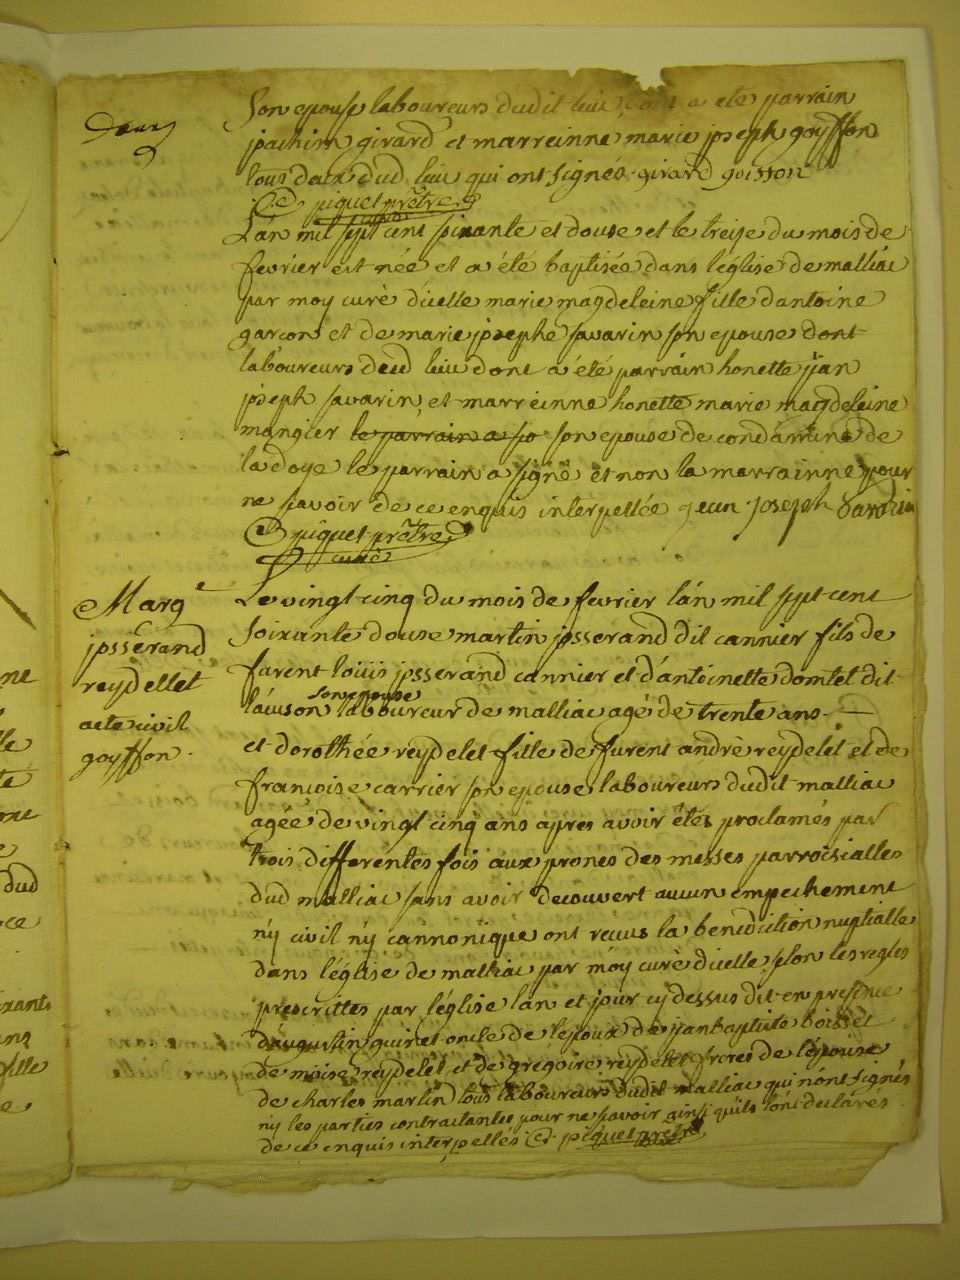 son epouse laboureurs dudit lieu, dont a ete parrain
joachim girard et marreinne marie joseph goyffon
tous deux dud lieu qui ont signés. girard goisson
piquet prêtre
curé
L'an mil sept cent soixante et douse et le treise du mois de
fevrier est née et a été baptisée dans l'église de malliac
par moy curè d'icelle marie magdeleine fille d'antoine
garcon et de marie josephe savarin son epouse dont
laboureurs dud lieu dont a été parrain honette jean
joseph savarin, et marreinne honette marie magdeleine
mangier le parrain a so son epouse de condamine de
la doye le parrain a signé et non la marrainne pour
ne savoir de ce enquis interpellée jean joseph Savarin
piquet prêtre
curé
Marg e
josserand
reydellet
acte civil
goyffon.
Le vingt cinq du mois de fevrier l'an mil sept cent
soixante douse martin josserand dit cannier fils de
furent louis josserand cannier et d'antoinette domtet dit
son epouse
lauson laboureur de malliac agé de trente ans.
et dorothée reydelet fille de furent andrè reydelet et de
francoise carrier son epouse laboureurs dudit malliac
agée de vingt cinq ans apres avoir étés proclamés par
trois differentes fois aux prones des messes parroissialles
dud malliac sans avoir decouvert aucun empechement
ny civil ny cannonique ont recus la benediction nuptialle
dans l'église de malliac par moy curè d'icelle selon les regles
prescrittes par l'église l'an et jour cy dessus dit en presence
d'augustin guinet oncle de l'epoux de jean baptiste boisset
de moise reydelet et de gregoire reydelet freres de l'epouse
de charles martin tous laboureurs dudit malliac qui n'ont signés
ny les parties contractantes pour ne savoir ainsi qu'ils l'ont declarés
de ce enquis interpelles piquet prêtre